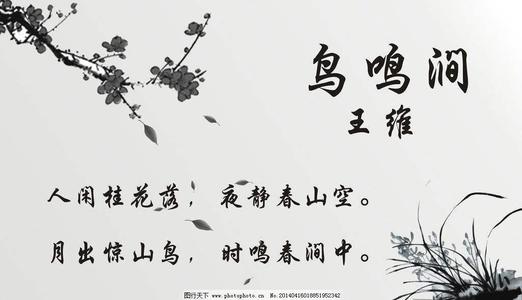 鸟鸣涧
王维
人闲桂花落，夜静春山空。
月出惊山鸟，时鸣春涧中。
图行天下 www.photophoto.cn No.20140416018851952342